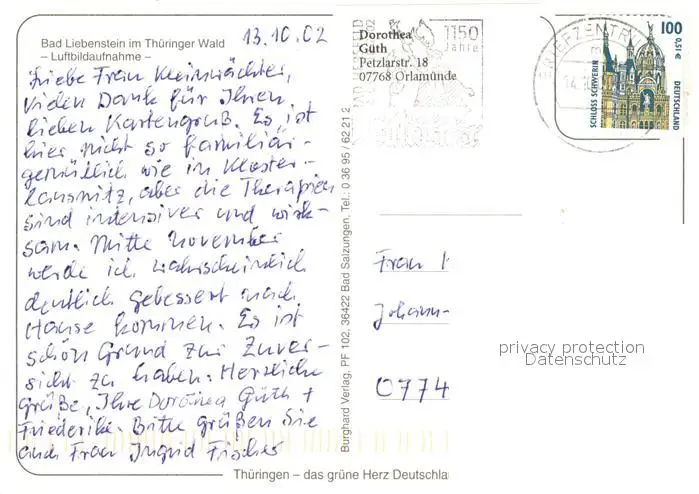 Bad Liebenstein im Thüringer Wald
– Luftbildaufnahme –
13.10.02
Liebe Frau Kleinwächter,
vielen Dank für Ihren
lieben Kartengruß. Es ist
hier nicht so familiär-
gemütlich wie in Kloster-
lausnitz, aber die Therapien
sind intensiver und wirk-
sam. Mitte November
werde ich wahrscheinlich
deutlich gebessert nach
Hause kommen. Es ist
schön Grund zur Zuver-
sicht zu haben. Herzliche
Grüße, Ihre Dorothea Güth +
Friederike. Bitte grüßen Sie
auch Frau Ingrid Fischer
Burghard Verlag, PF 102, 36422 Bad Salzungen, Tel.: 0 36 95 / 62 21 2
Dorothea
Güth
Petzlarstr. 18
07768 Orlamünde
1150
Jahre
BRIEFZENTRUM
14.
100
0,51 €
SCHLOSS SCHWERIN
DEUTSCHLAND
Frau
Johann-
0774
privacy protection
Datenschutz
Thüringen – das grüne Herz Deutschla